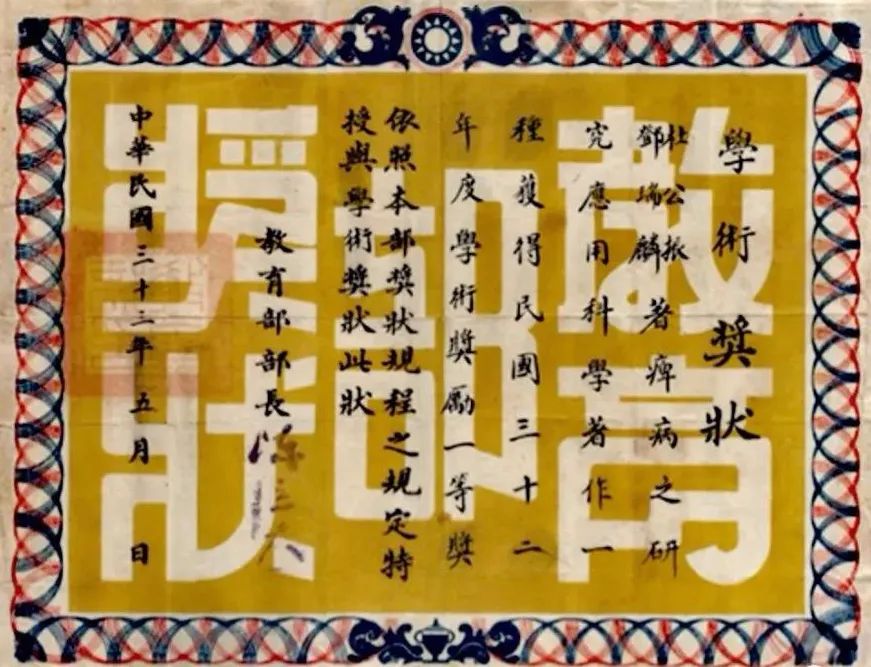 教育部獎狀
學術獎狀
杜公振
鄧瑞麟著痺病之研
究應用科學著作一
種獲得民國三十二
年度學術獎勵一等獎
依照本部獎狀規程之規定特
授與學術獎狀此狀
教育部部長陳立夫
中華民國三十三年五月 日